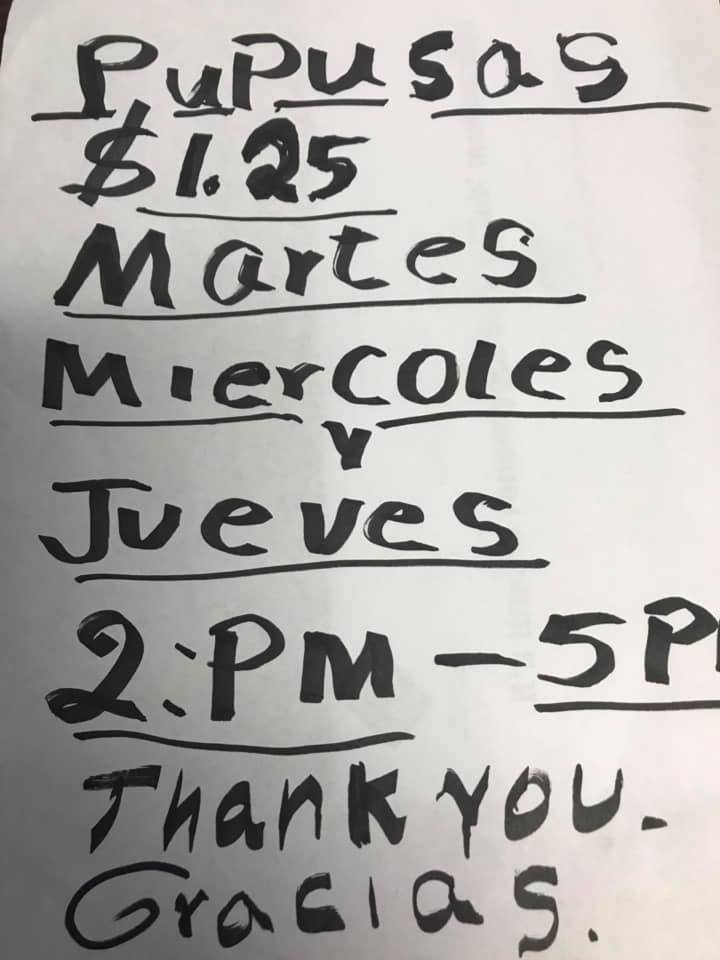 PuPusas
$1.25
Martes
Miercoles
y
Jueves
2:PM - 5P
Thank you.
Gracias.